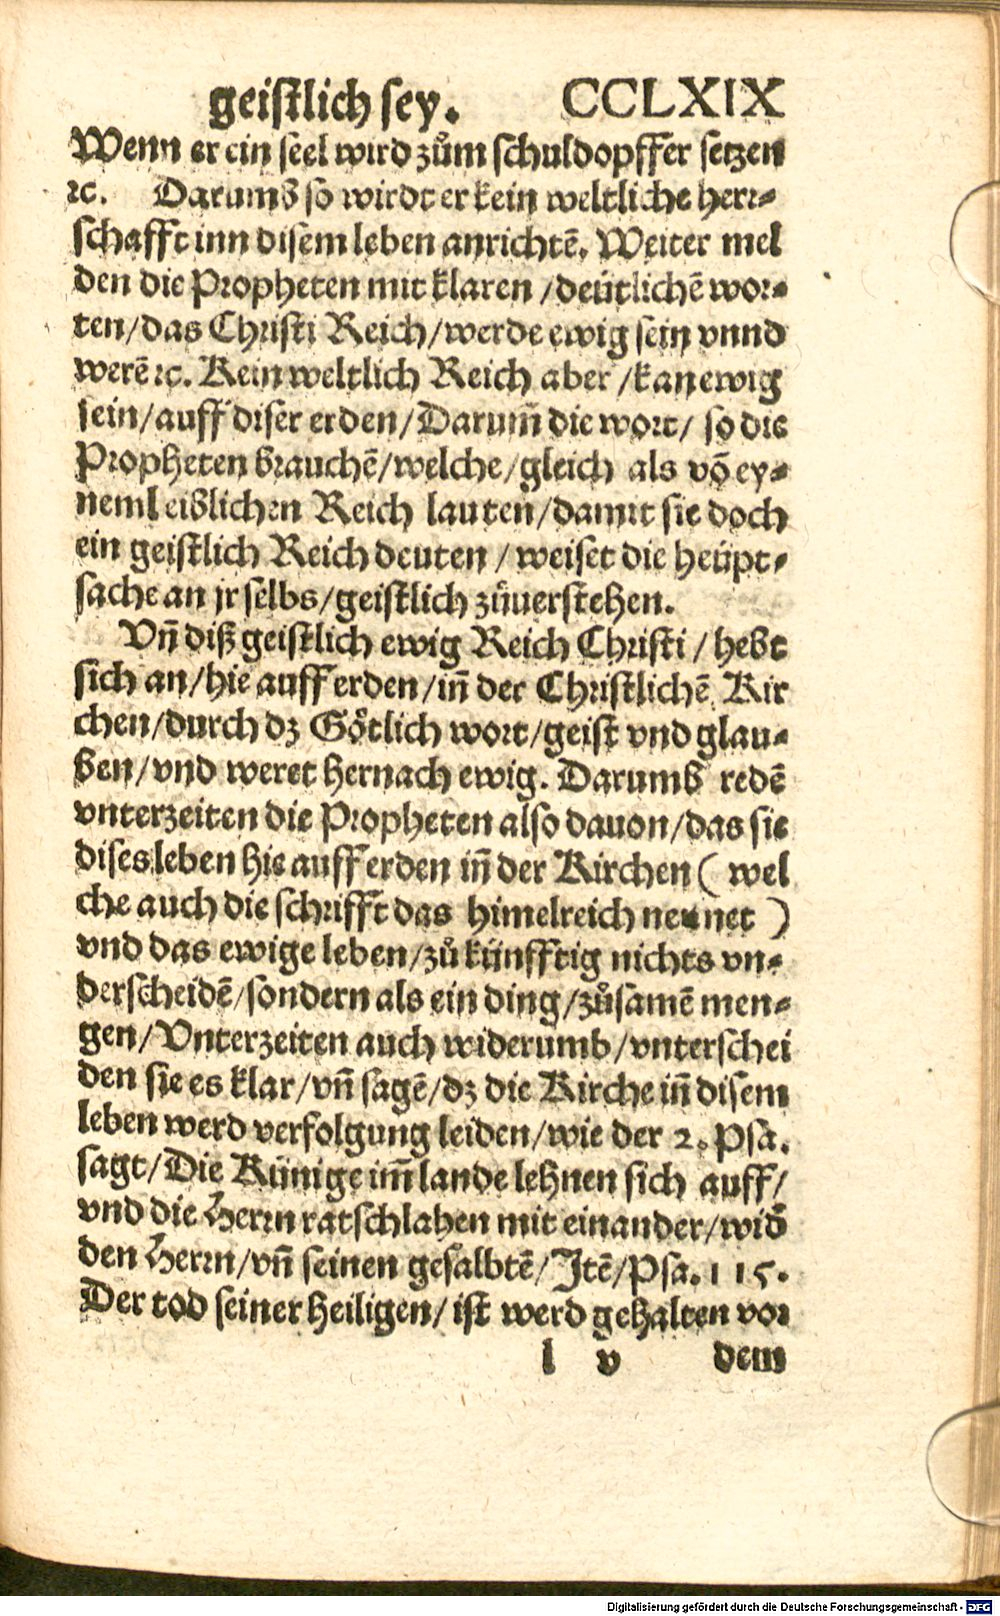 geistlich sey. CCLXIX
Wenn er ein seel wird zům schuldopffer setzen
ꝛc. Darumb so wirdt er kein weltliche herr-
schafft inn disem leben anrichtē. Weiter mel
den die Propheten mit klaren / deütlichē wor-
ten/das Christi Reich/werde ewig sein vnnd
werē ꝛc. Kein weltlich Reich aber /kan ewig
sein/auff diser erden/Darum̄ die wort/ so die
Propheten brauchē/welche/gleich als vō ey-
nem leiblichen Reich lauten/damit sie doch
ein geistlich Reich deuten / weiset die heüpt-
sache an jr selbs/geistlich zůuerstehen.
Vn̄ diß geistlich ewig Reich Christi / hebt
sich an/hie auff erden/in̄ der Christlichē Kir
chen/durch dz Gőtlich wort/geist vnd glau-
ben/vnd weret hernach ewig. Darumb redē
vnterzeiten die Propheten also dauon/das sie
dises leben hie auff erden in̄ der Kirchen ( wel
che auch die schrifft das himelreich nennet )
vnd das ewige leben/zů künfftig nichts vn-
derscheidē/sondern als ein ding/zůsamē men-
gen/Vnterzeiten auch widerumb/vnterschei
den sie es klar/vn̄ sagē/dz die Kirche in̄ disem
leben werd verfolgung leiden/wie der 2. Psa.
sagt/Die Künige im̄ lande lehnen sich auff/
vnd die Herrn ratschlahen mit einander/wid̄
den Herrn/vn̄ seinen gesalbtē/Jtē/Psa. 115.
Der tod seiner heiligen/ ist werd gehalten vor
l v dem
Digitalisierung gefördert durch die Deutsche Forschungsgemeinschaft - DFG